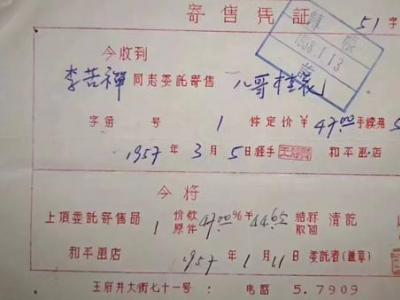 寄售凭証 51 字
1958.1.13
今收到
李苦禅 同志委託寄售 八哥
字 号 1 件定价￥47.00 手續
1957 年 3 月 5 日 經手 和平画店
今将
上項委託寄售品 1 47.00 44.65 結算 清訖
和平画店
1957 年 1 月 11 日 委託者(蓋章)
王府井大街七十一号: 电話 5.7909